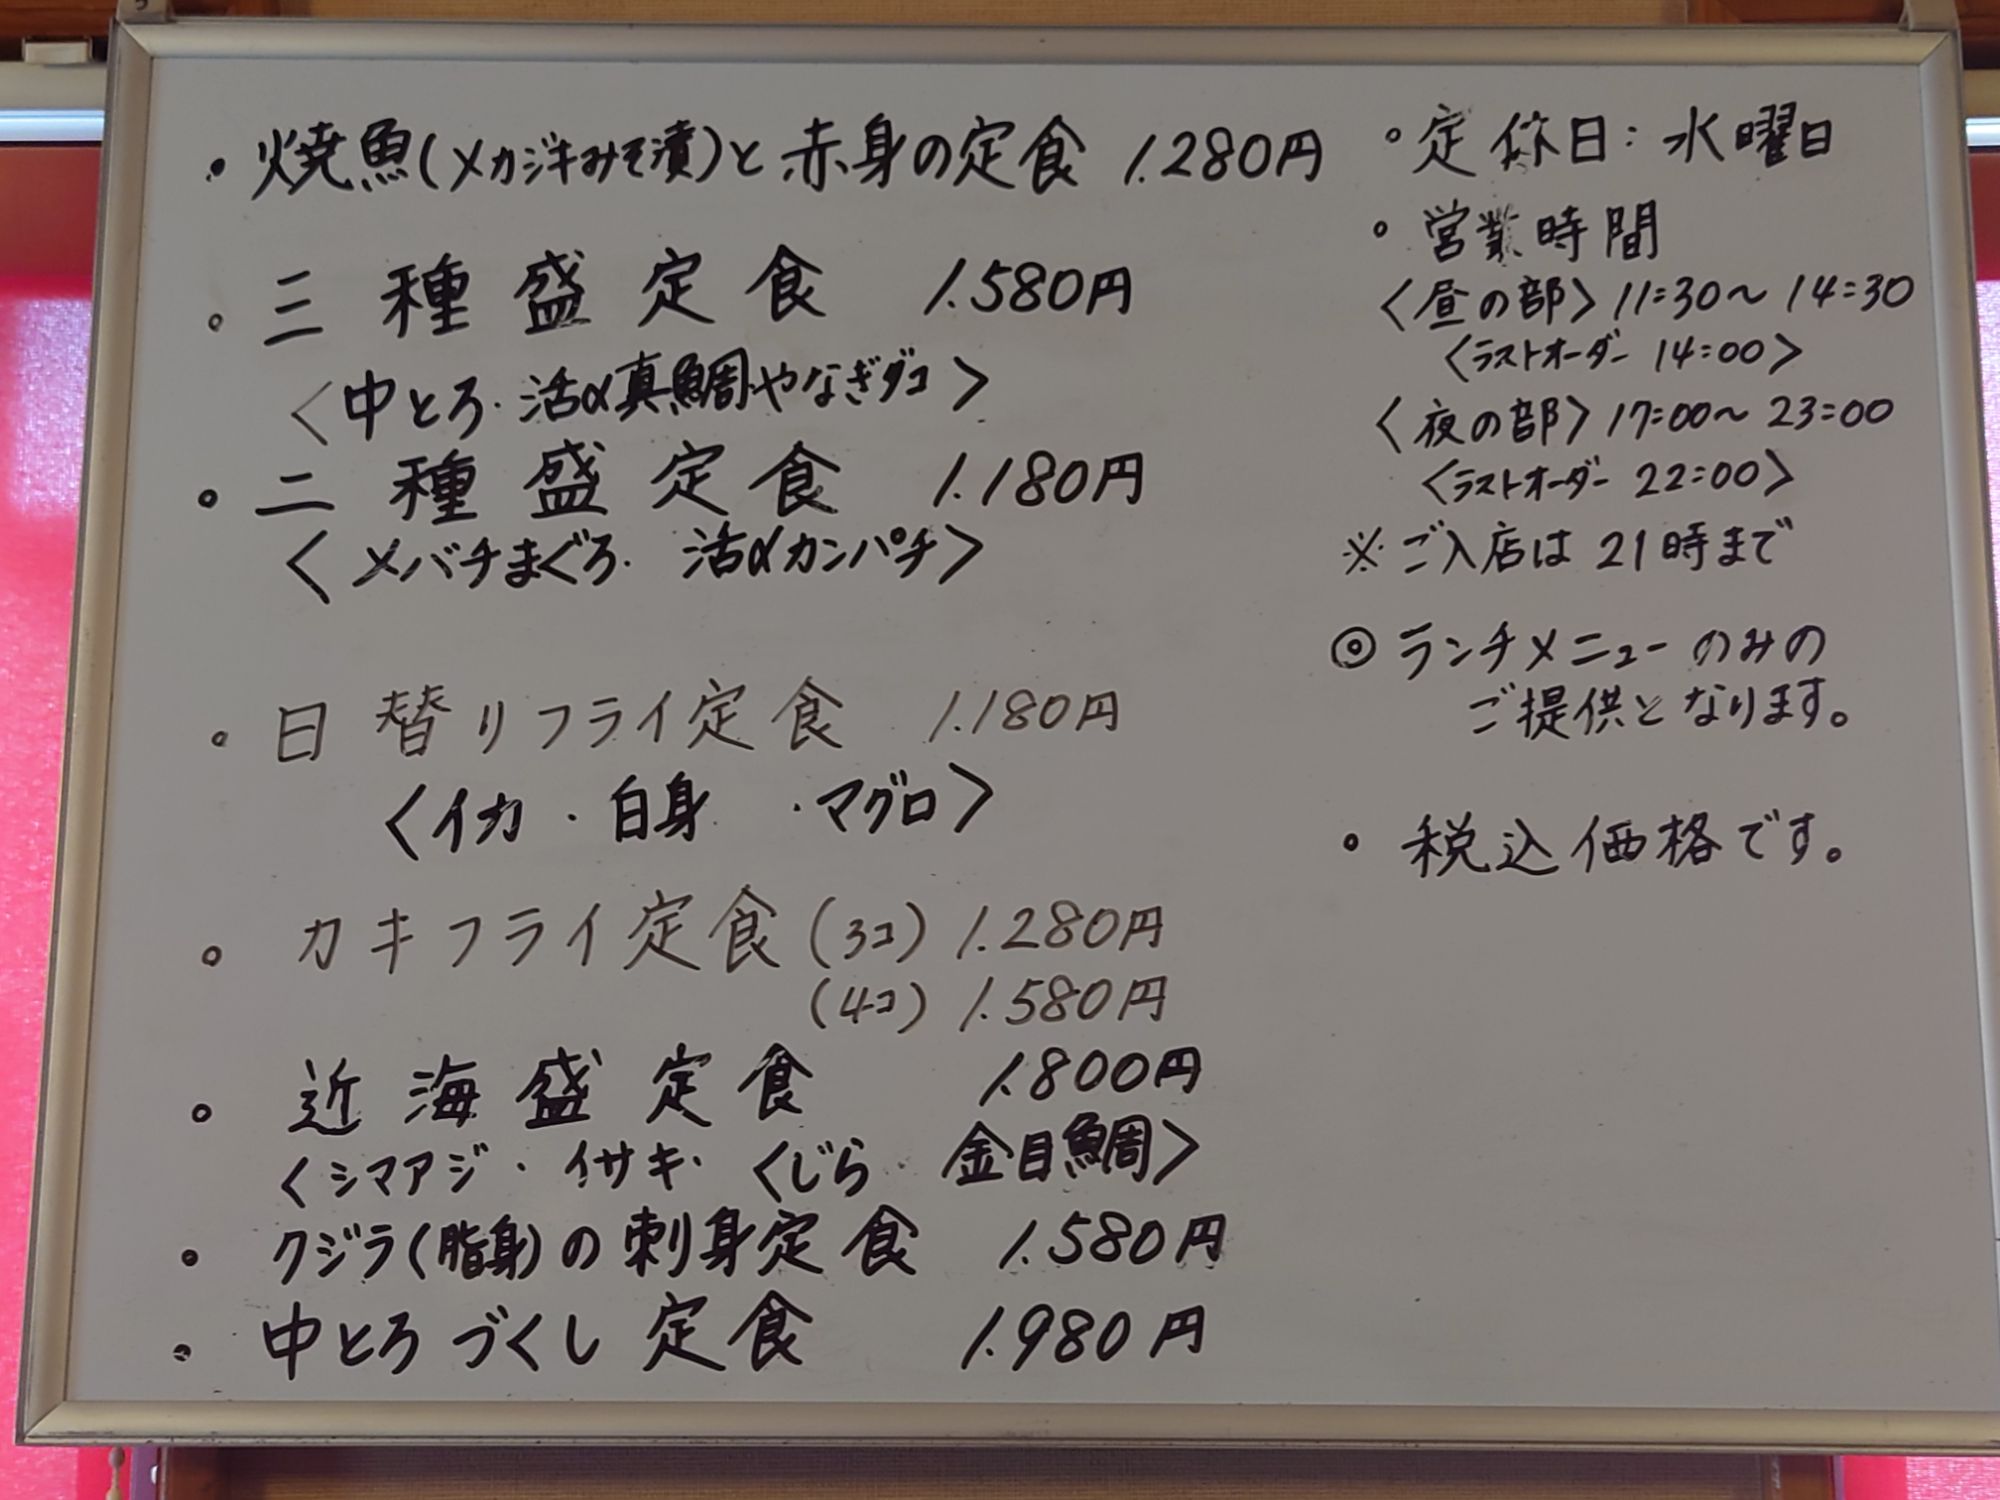 ・焼魚(メカジキみそ漬)と赤身の定食 1.280円
。三種盛定食 1.580円
〈中とろ・活〆真鯛・やなぎダコ〉
。二種盛定食 1.180円
〈メバチまぐろ・活〆カンパチ〉
。日替りフライ定食 1.180円
〈イカ・白身・マグロ〉
。カキフライ定食(3コ) 1.280円
(4コ) 1.580円
。近海盛定食 1.800円
〈シマアジ・イサキ・くじら・金目鯛〉
。クジラ(脂身)の刺身定食 1.580円
。中とろづくし定食 1.980円
。定休日:水曜日
。営業時間
〈昼の部〉11:30〜14:30
〈ラストオーダー 14:00〉
〈夜の部〉17:00〜23:00
〈ラストオーダー 22:00〉
※ご入店は21時まで
◎ランチメニューのみの
ご提供となります。
。税込価格です。